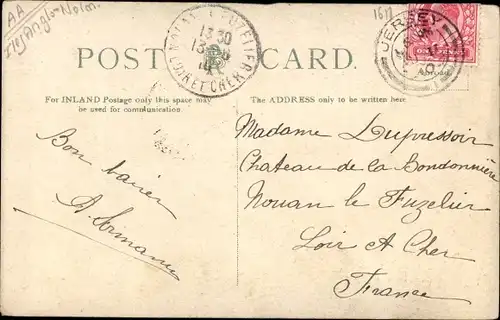 AA
1611
POST CARD.
NOUAN-LE-FUZELIER
13 30
LOIR-ET-CHER
JERSEY
ONE PENNY
For INLAND Postage only this space may
be used for communication.
The ADDRESS only to be written here.
Bon baiser
A.
Madame Dupressoir
Chateau de la Bondonnière
Nouan le Fuzelier
Loir A Cher
France